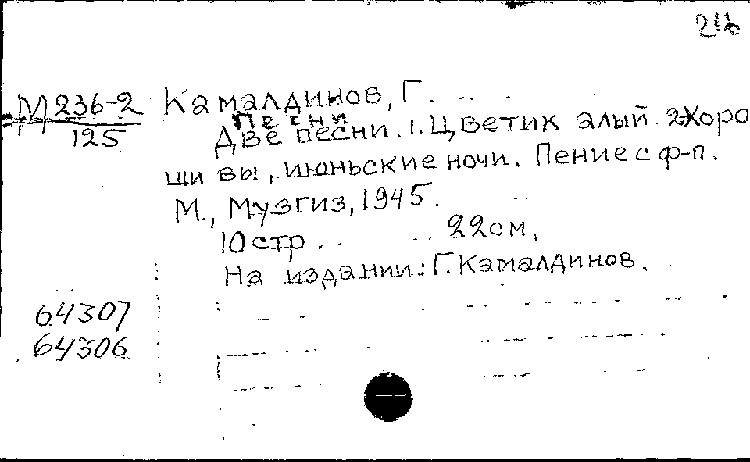 М 236-2
125
Камалдинов, Г.
Песни
Две песни. 1. Цветик алый. 2. Хоро
ши вы, июньские ночи. Пение с ф-п.
М., Музгиз, 1945.
10 стр. 22 см.
На издании: Г. Камалдинов.
64307
64306